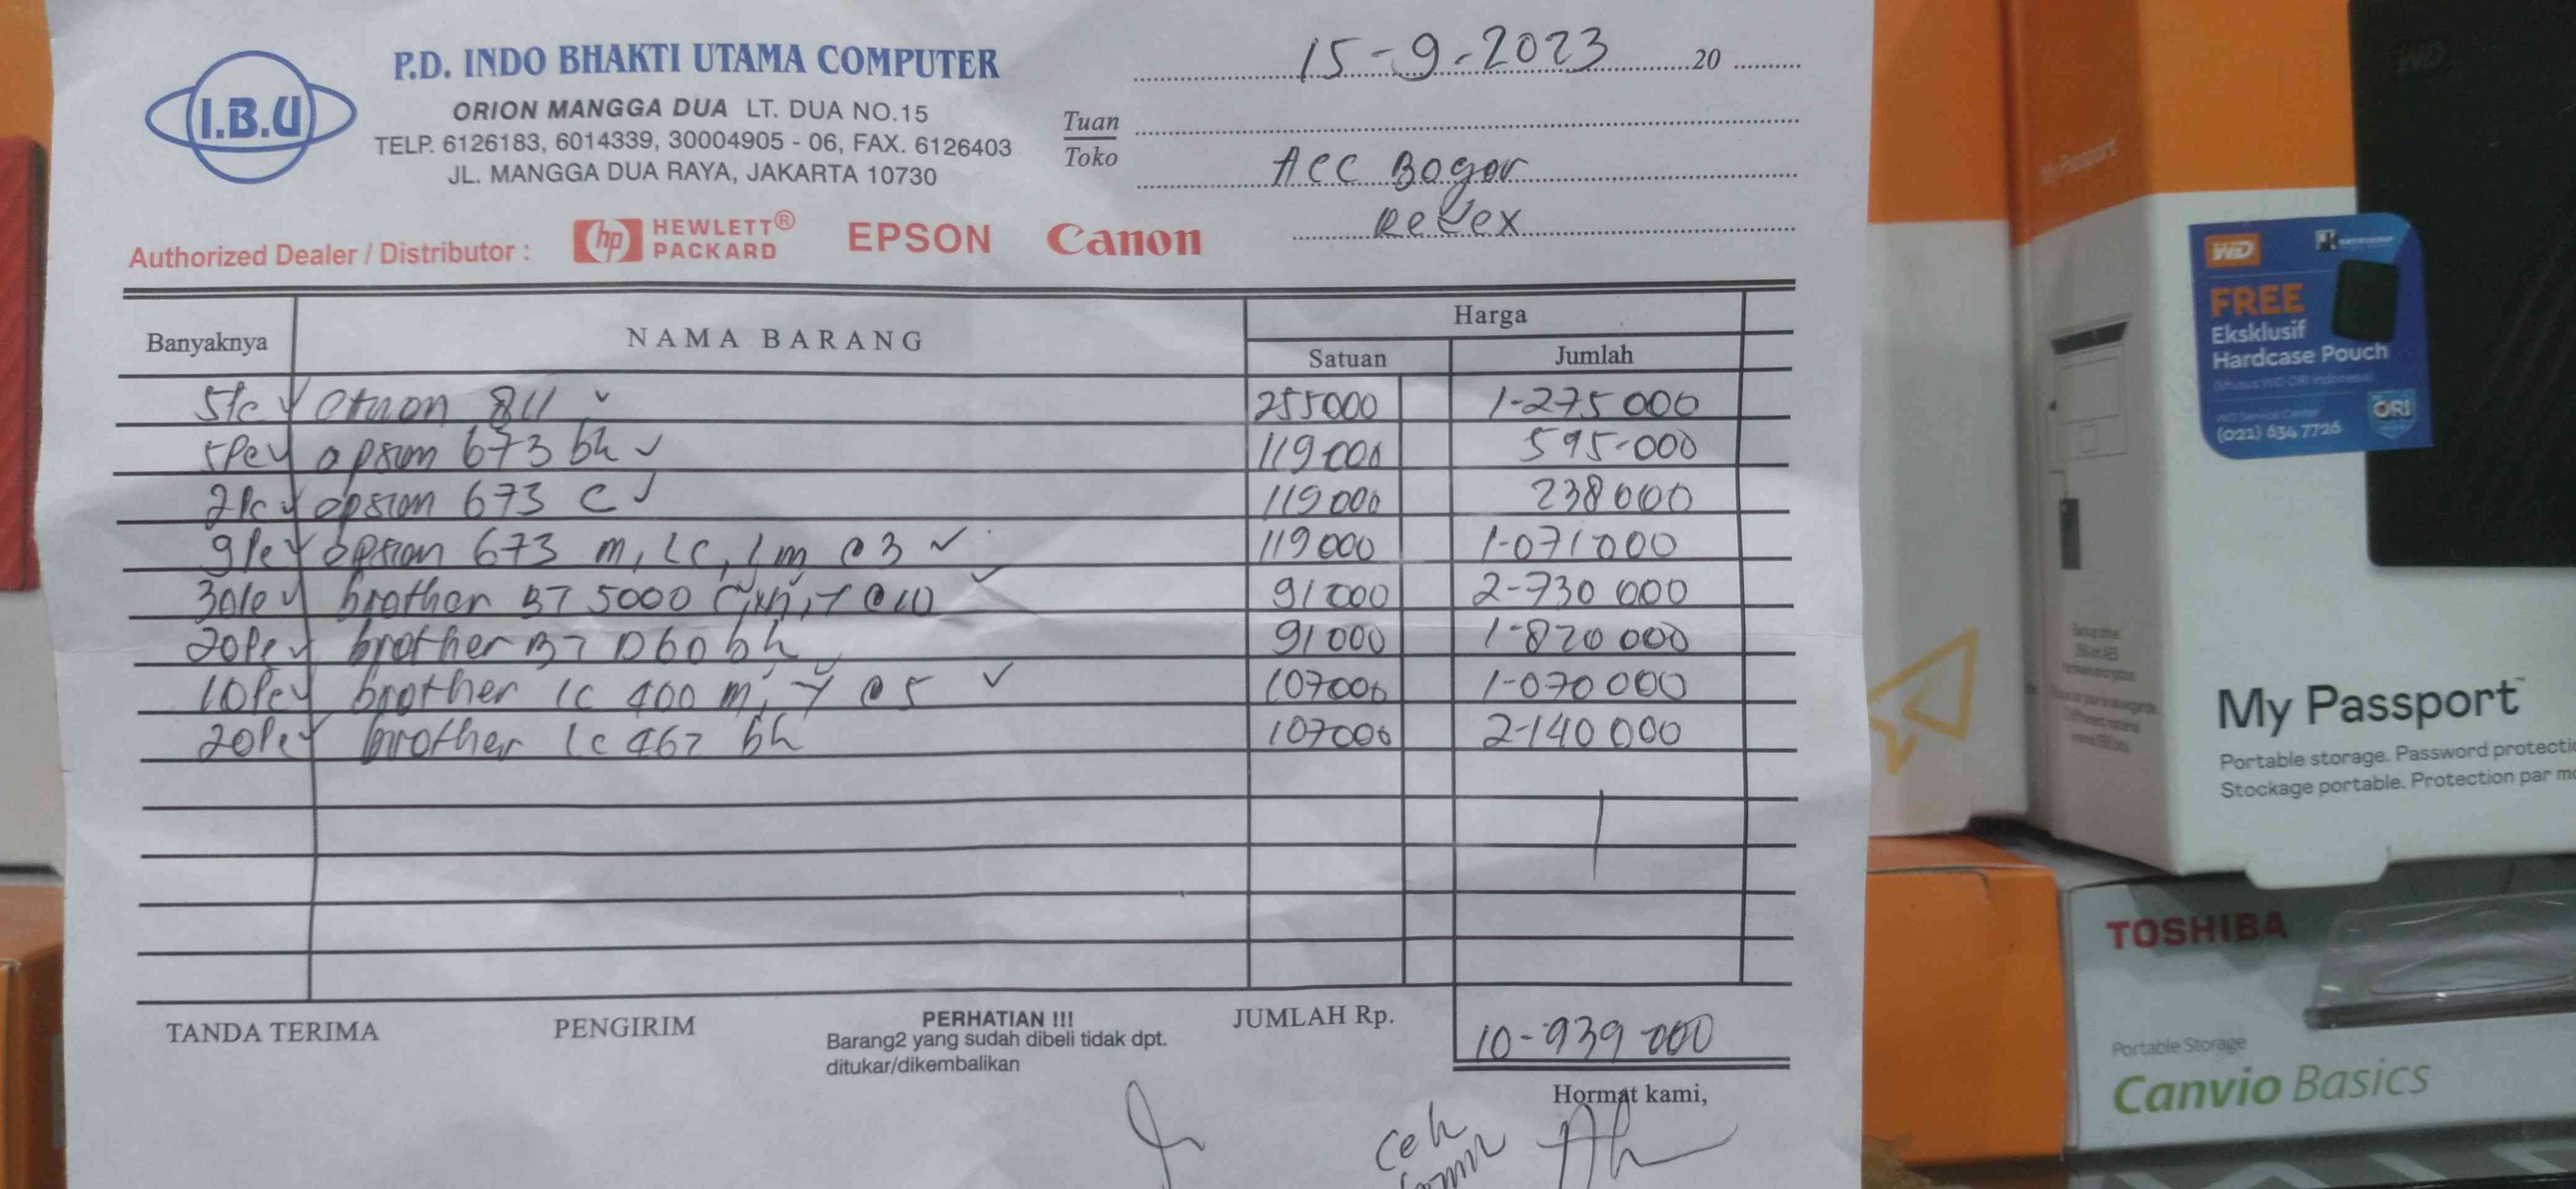 P.D. INDO BHAKTI UTAMA COMPUTER
I.B.U
ORION MANGGA DUA LT. DUA NO.15
TELP. 6126183, 6014339, 30004905 - 06, FAX. 6126403
JL. MANGGA DUA RAYA, JAKARTA 10730
15-9-2023 20
Tuan
Toko
ACC Bogor
Relex
Authorized Dealer / Distributor : hp HEWLETT® PACKARD EPSON Canon
Banyaknya NAMA BARANG Harga
Satuan Jumlah
811 255000 1-275 000
673 bk 119 000 595-000
673 C 119 000 238 000
673 m, Lc, Lm @3 119 000 1-071 000
brother BT 5000 @10 91 000 2-730 000
brother BT D60 bk 91 000 1-820 000
brother lc 400 m, y @5 107000 1-070 000
brother lc 462 bk 107000 2-140 000
TANDA TERIMA PENGIRIM
PERHATIAN !!!
Barang2 yang sudah dibeli tidak dpt.
ditukar/dikembalikan
JUMLAH Rp. 10-939 000
Hormat kami,
WD
FREE
Eksklusif
Hardcase Pouch
(021) 634 7726
ORI
My Passport
My Passport™
Portable storage. Password
Stockage portable. Protection par
TOSHIBA
Portable Storage
Canvio Basics